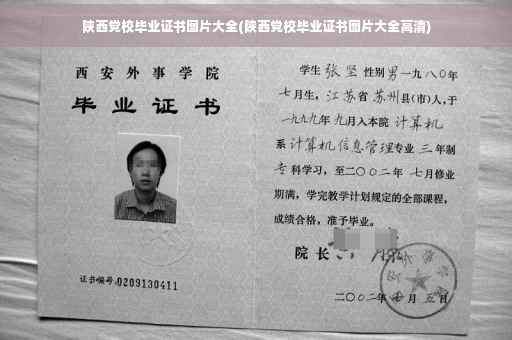 陕西党校毕业证书图片大全(陕西党校毕业证书图片大全高清)
西安外事学院
毕业证书
证书编号:0209130411
学生 张坚 性别男一九八〇年
七月生，江苏省苏州县(市)人，于
一九九九年九月入本院 计算机
系 计算机信息管理专业 三 年制
专科学习，至二〇〇二年 七月修业
期满，学完教学计划规定的全部课程，
成绩合格，准予毕业。
院长
二〇〇二年 月 五 日